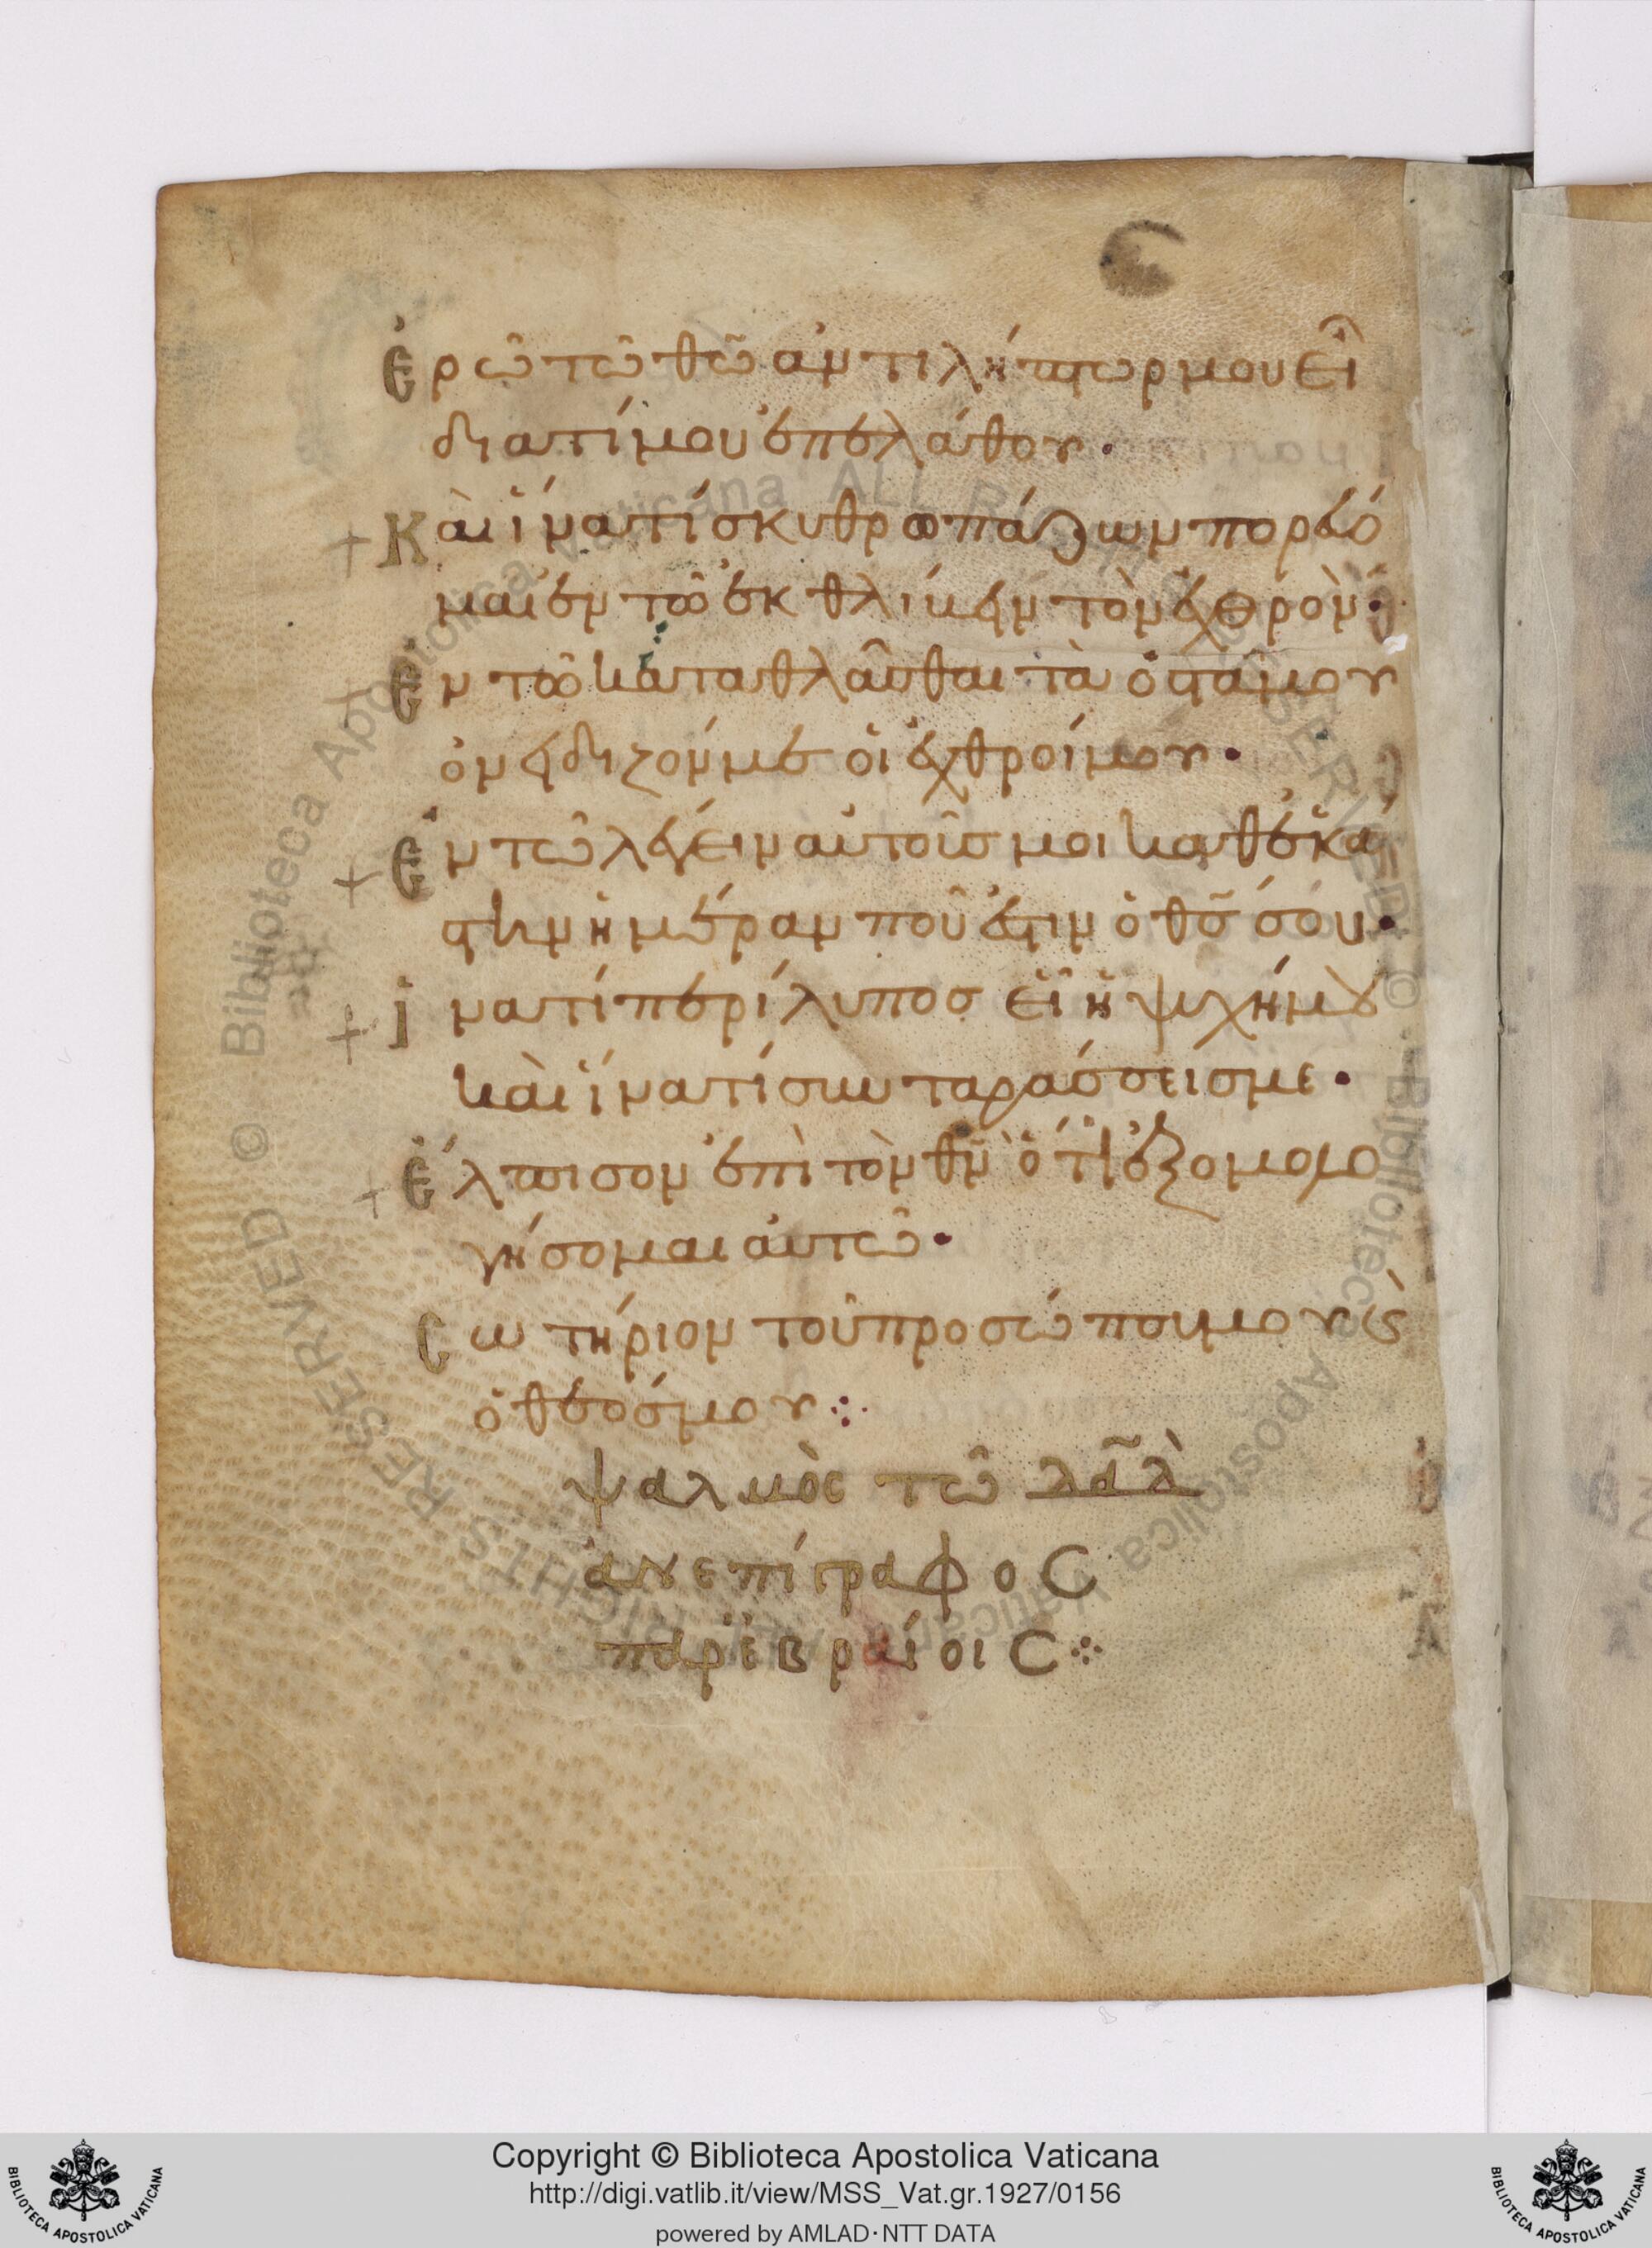 Ἐρῶ τῶ θῶ ἀντιλήπτωρ μου εἶ
διατί μου ἐπελάθου·
Καὶ ἱνατί σκυθρωπάζων πορεύο
μαι ἐν τῶ ἐκθλίβειν τὸν ἐχθρὸν·
Ἐν τῶ καταθλᾶσθαι τὰ ὀστᾶ μου
ὀνείδιζον με οἱ ἐχθροί μου·
Ἐν τῶ λέγειν αὐτοῖς μοι καθεκά
στην ἡμέραν ποῦ ἐστιν ὁ θς σου·
Ἱνατί περίλυπος εἶ ἡ ψυχή μου
καὶ ἱνατί συνταράσσεις με·
Ἔλπισον ἐπὶ τὸν θν ὅτι ἐξομολο
γήσομαι αὐτῶ·
Σωτήριον τοῦ προσώπου μου κς
ὁ θεός μου
ψαλμὸς τῶ δαδ
ἀνεπίγραφος
παρ ἑβραίοις
Copyright © Biblioteca Apostolica Vaticana
http://digi.vatlib.it/view/MSS_Vat.gr.1927/0156
powered by AMLAD·NTT DATA
BIBLIOTECA APOSTOLICA VATICANA
BIBLIOTECA APOSTOLICA VATICANA